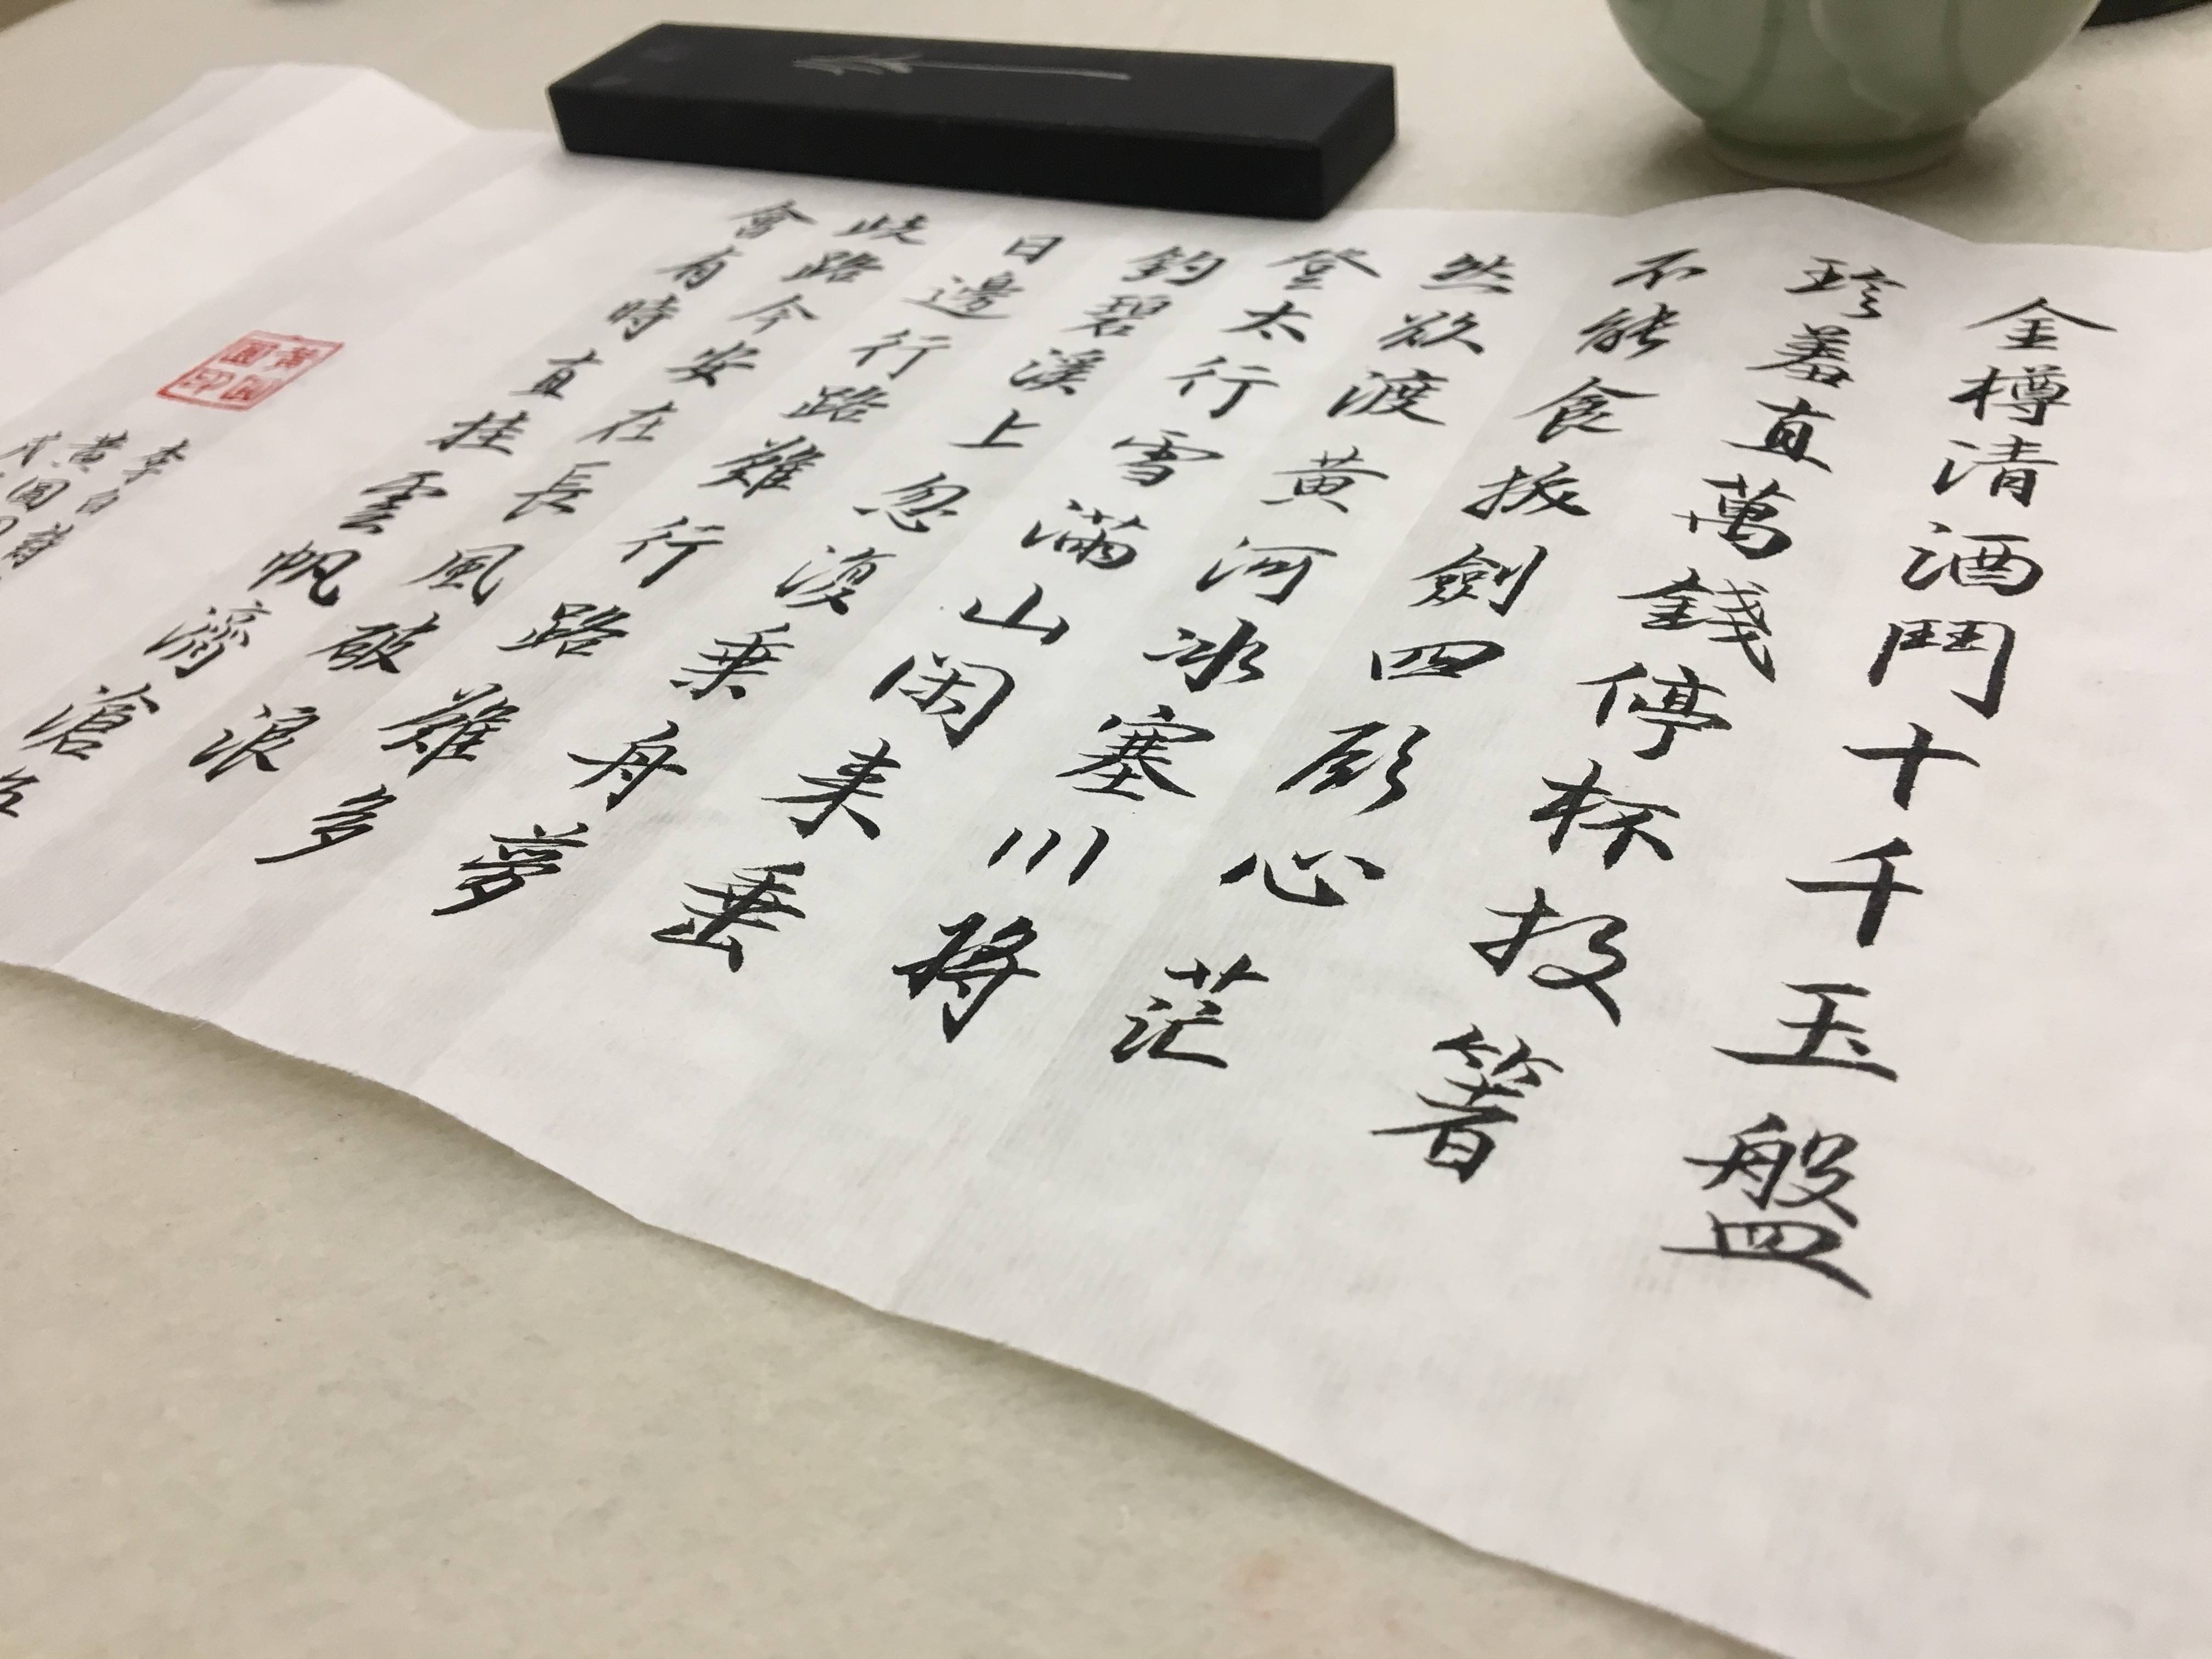 金樽清酒鬥十千玉盤
珍羞直萬錢停杯投箸
不能食拔劍四顧心茫
然欲渡黄河冰塞川将
登太行雪滿山闲来垂
釣碧溪上忽復乘舟夢
日邊行路難行路難多
歧路今安在長風破浪
會有時直挂雲帆濟滄
李白
黄